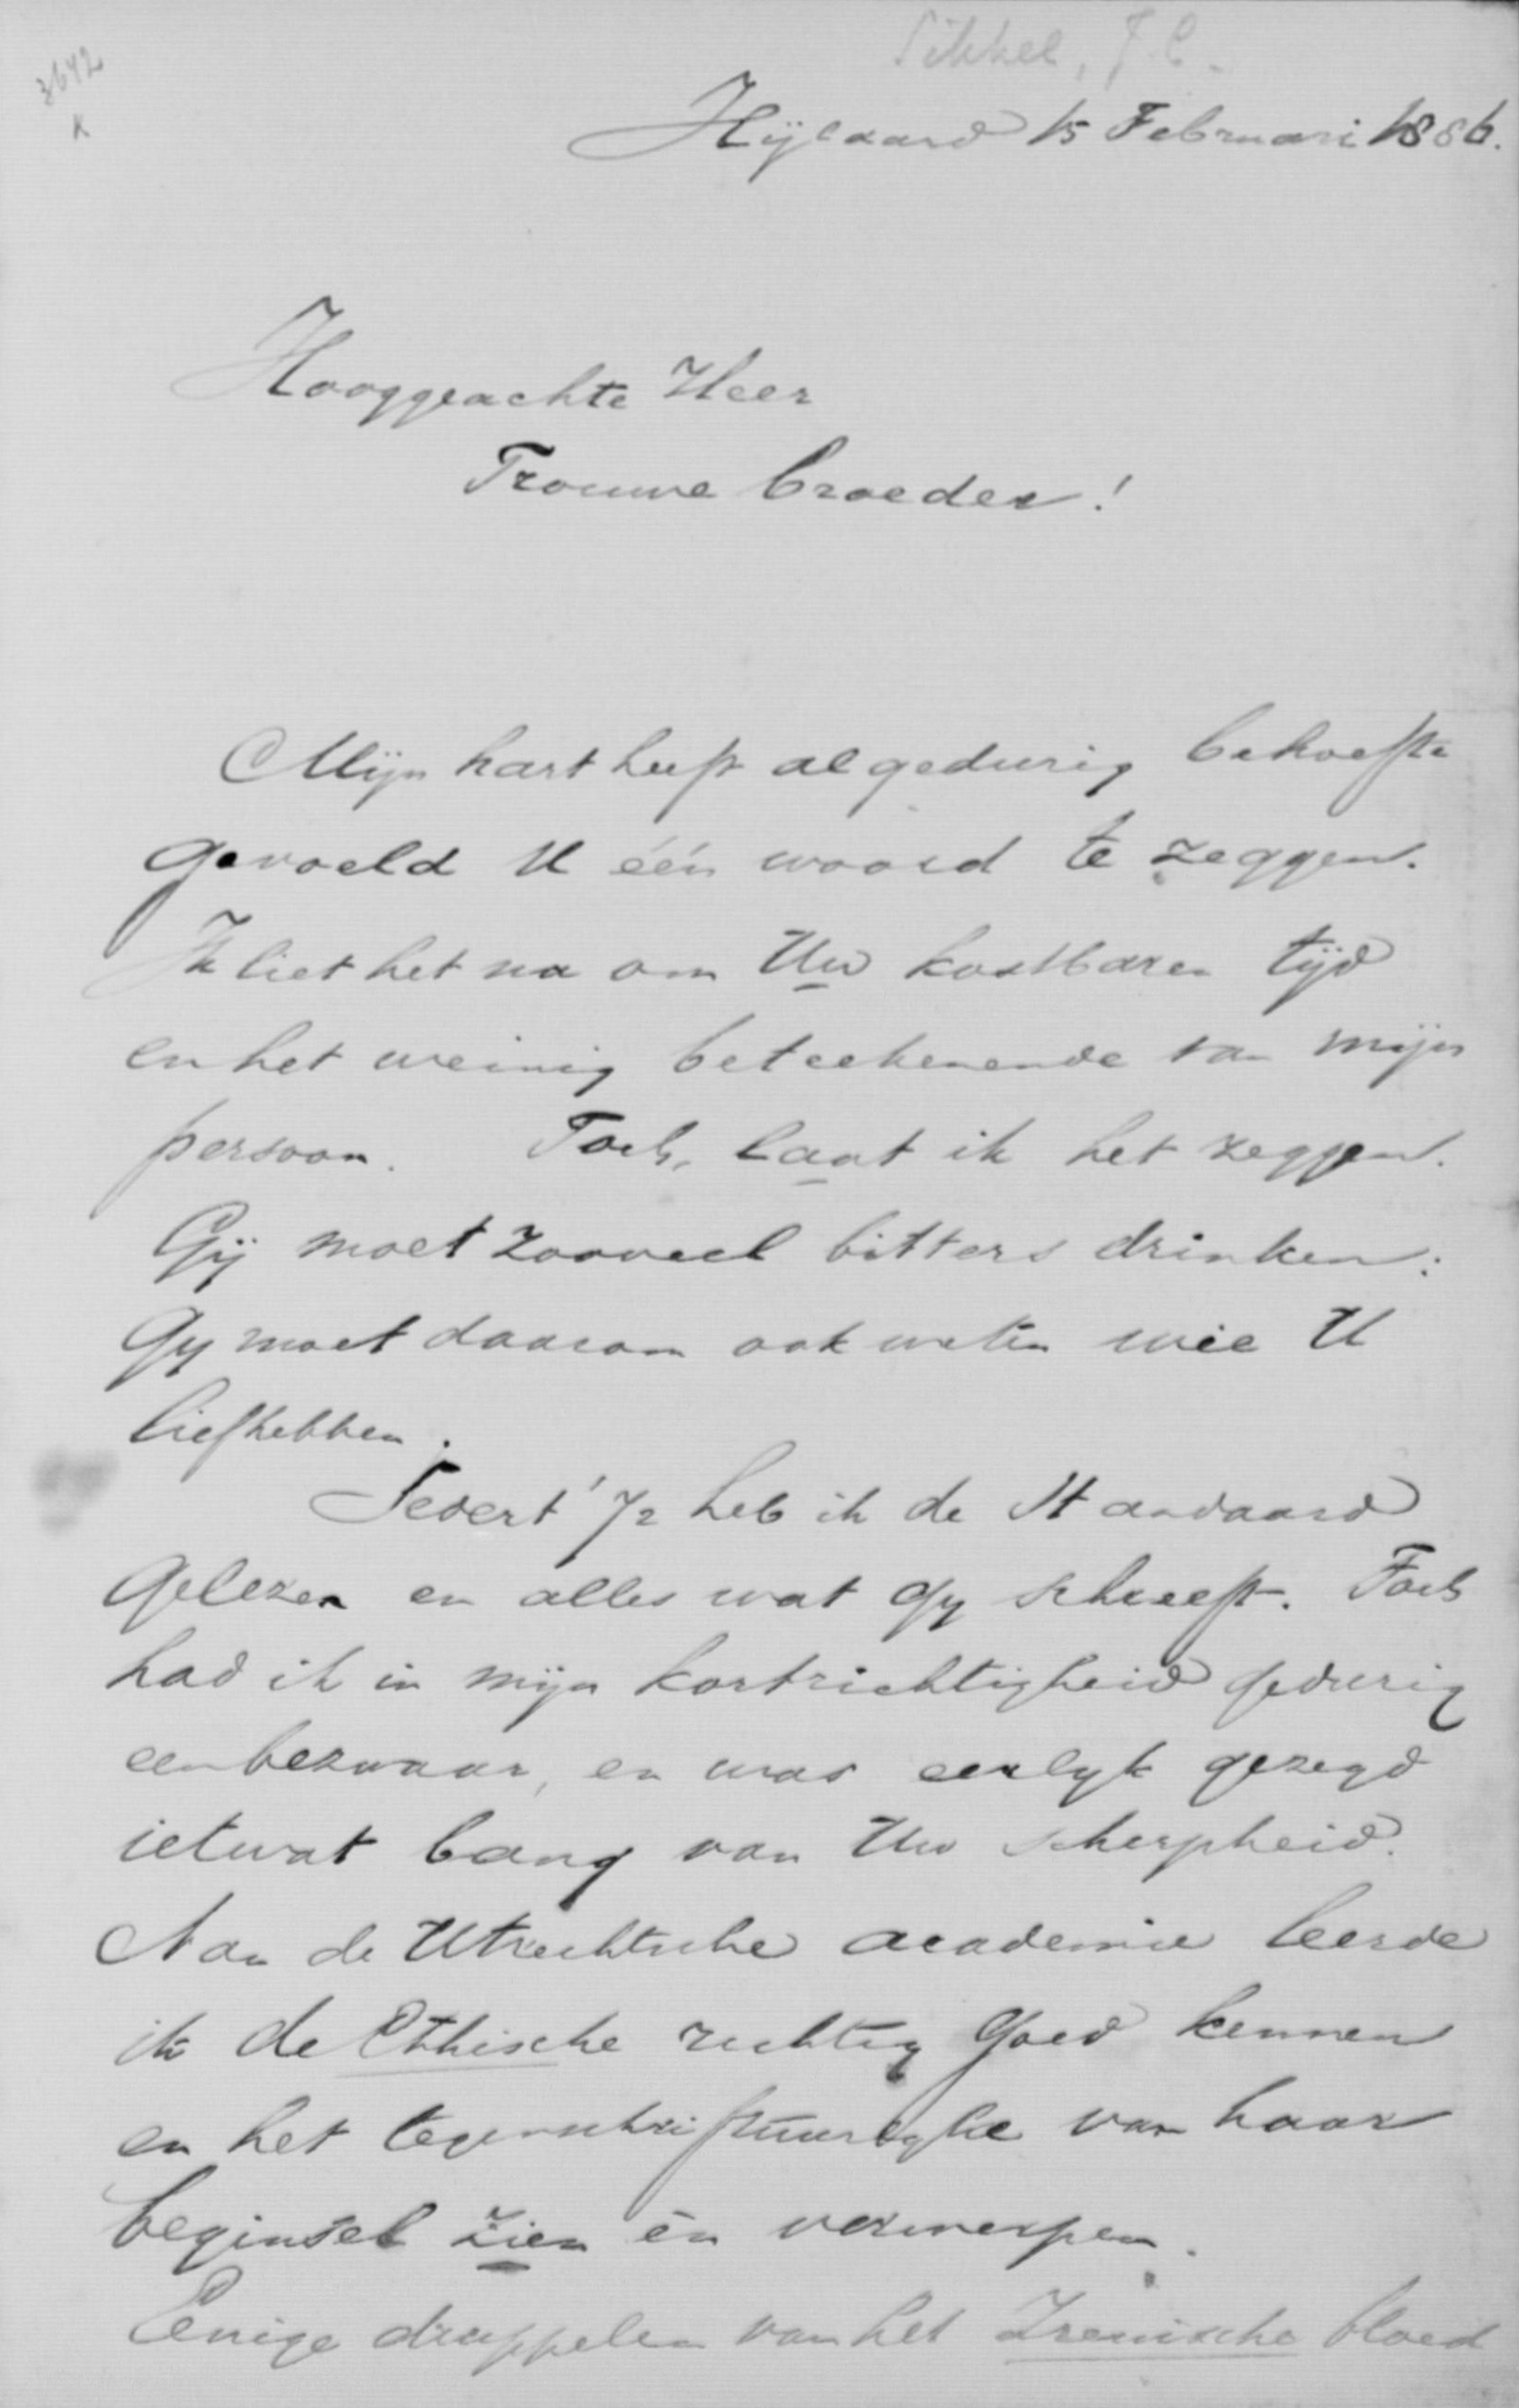 Sikkel, J.C.
3642
K
Hijlaard 15 Februari 1886.
Hooggeachte Heer
Trouwe broeder!
Mijn hart heeft al gedurig behoefte
gevoeld U één woord te zeggen.
Ik liet het na om Uw kostbaren tijd
en het weinig beteekenende van mijn
persoon. Toch, laat ik het zeggen.
Gij moet zooveel bitters drinken:
Gy moet daarom ook weten wie U
liefhebben.
Sedert '72 heb ik de Standaard
gelezen en alles wat Gy schreeft. Toch
had ik in mijn kortzichtigheid gedurig
een bezwaar, en was eerlyk gezegd
ietwat bang van Uw scherpheid.
Aan de Utrechtsche academie leerde
ik de Ethische richting goed kennen
en het tegenschriftuurlyke van haar
beginsel zien én verwerpen.
Eenige druppelen van het Irenische bloed